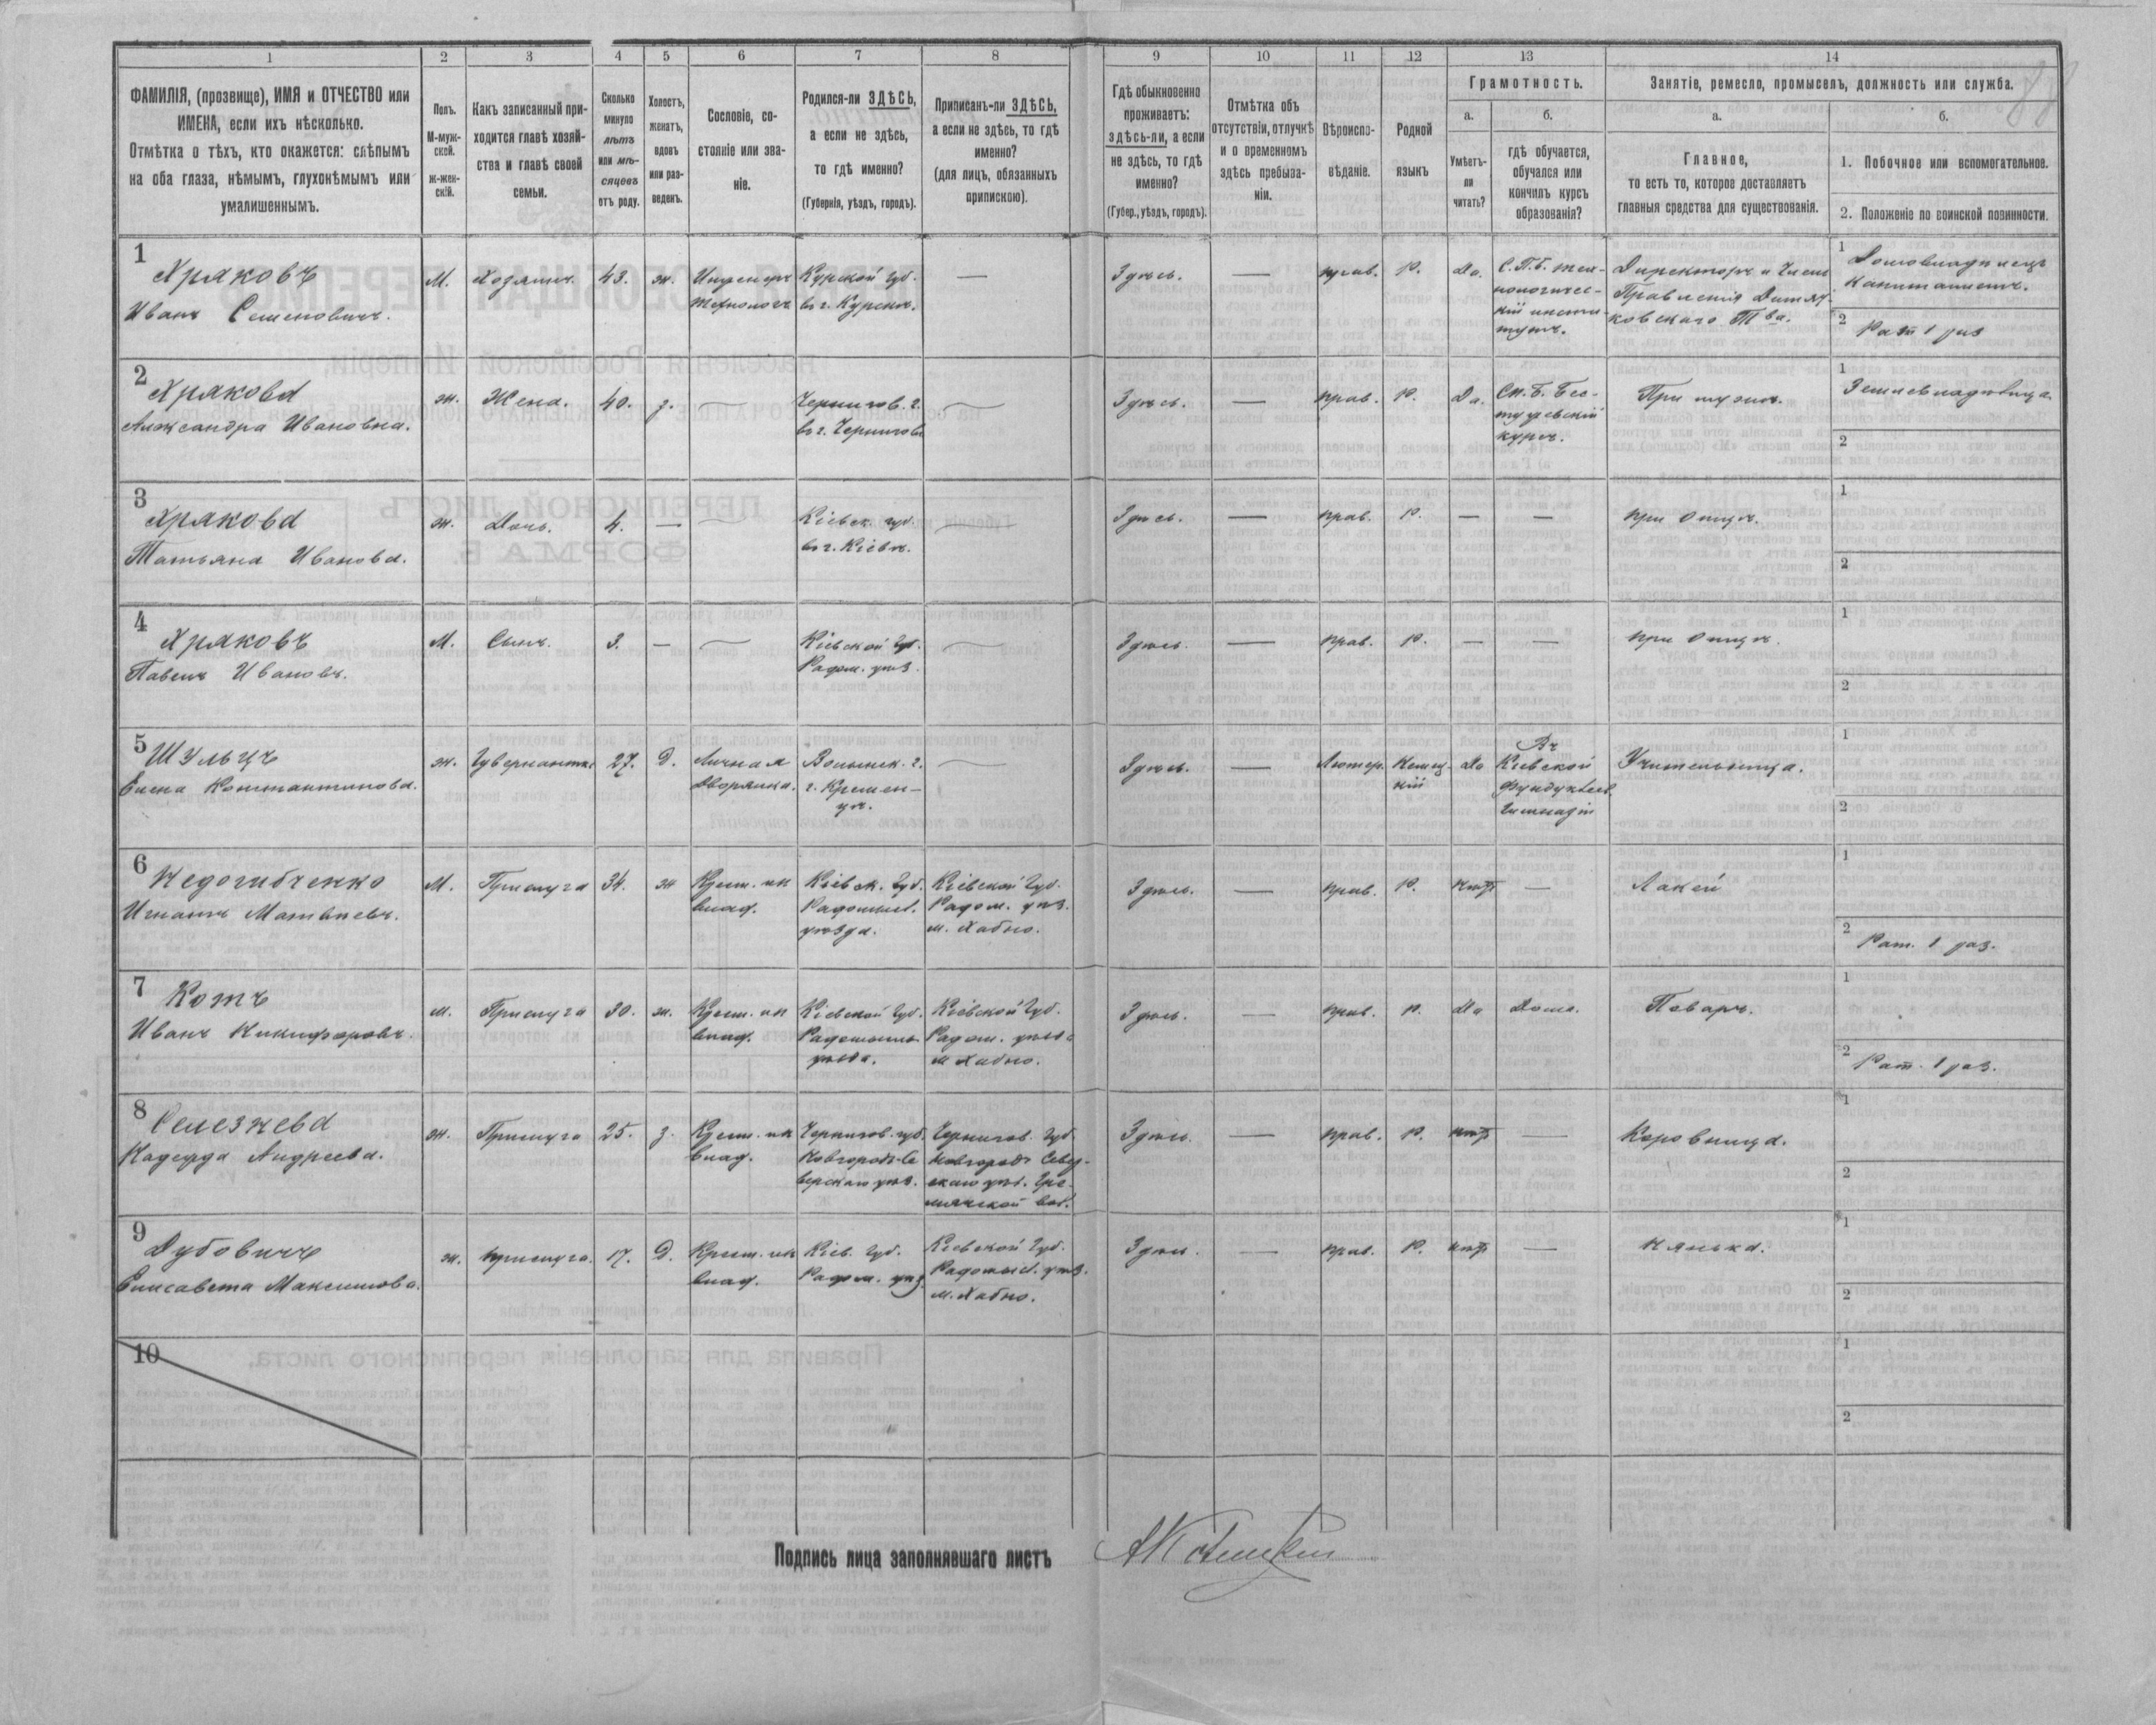 1 2 3 4 5 6 7 8 9 10 11 12 13 14
ФАМИЛІЯ, (прозвище), ИМЯ и ОТЧЕСТВО или
ИМЕНА, если ихъ нѣсколько.
Отмѣтка о тѣхъ, кто окажется: слѣпымъ
на оба глаза, нѣмымъ, глухонѣмымъ или
умалишеннымъ.
Полъ.
М-муж-
ской.
ж-жен-
скій.
Какъ записанный при-
ходится главѣ хозяй-
ства и главѣ своей
семьи.
Сколько
минуло
лѣтъ
или мѣ-
сяцевъ
отъ роду.
Холостъ,
женатъ,
вдовъ
или раз-
веденъ.
Сословіе, со-
стояніе или зва-
ніе.
Родился-ли ЗДѢСЬ,
а если не здѣсь,
то гдѣ именно?
(Губернія, уѣздъ, городъ).
Приписанъ-ли ЗДѢСЬ,
а если не здѣсь, то гдѣ
именно?
(для лицъ, обязанныхъ
припискою).
Гдѣ обыкновенно
проживаетъ:
здѣсь-ли, а если
не здѣсь, то гдѣ
именно?
(Губер., уѣздъ, городъ).
Отмѣтка объ
отсутствіи, отлучкѣ
и о временномъ
здѣсь пребыва-
ніи.
Вѣроиспо-
вѣданіе.
Родной
языкъ
Грамотность.
а.
Умѣетъ-
ли
читать?
б.
гдѣ обучается,
обучался или
кончилъ курсъ
образованія?
Занятіе, ремесло, промыселъ, должность или служба.
а.
Главное,
то есть то, которое доставляетъ
главныя средства для существованія.
б.
1. Побочное или вспомогательное.
2. Положеніе по воинской повинности.
1
Хряковъ
Иванъ Семеновичъ.
М.
Хозяинъ.
43.
ж.
Инженеръ
технологъ
Курской губ.
въ г. Курскѣ.
—
Здѣсь.
—
прав.
Р.
Да.
С.П.Б. тех-
нологичес-
кій инсти-
тутъ.
Директоръ и Членъ
Правленія Дитят-
ковскаго Тва.
1 Домовладѣлецъ
Капиталистъ.
2 Рат 1 раз
2
Хрякова
Александра Ивановна.
ж.
Жена.
40.
з.
—
Чернигов. г.
въ г. Чернигов
—
Здѣсь.
—
прав.
Р.
Да.
Сп. Б. Бес-
тужевскій
курсъ.
При мужѣ.
1 Землевладѣлица.
2
3
Хрякова
Татьяна Иванова.
ж.
Дочь.
4.
—
—
Кіевск. губ.
въ г. Кіевѣ.
—
Здѣсь.
—
прав.
Р.
—
—
при отцѣ.
1
2
4
Хряковъ
Павелъ Ивановъ.
М.
Сынъ.
3.
—
—
Кіевской губ.
Радом. уѣз.
—
Здѣсь.
—
прав.
Р.
—
—
при отцѣ.
1
2
5
Шульцъ
Елена Константинова.
ж.
Гувернантка
27.
Д.
Личная
дворянка.
Волынск. г.
г. Кремен-
цѣ.
—
Здѣсь.
—
Лютер.
Немец-
кій
Да
Въ
Кіевской
Фундуклеев.
Гимназіи
Учительница.
1
2
6
Недогибченко
Игнатъ Матвѣевъ.
М.
Прислуга
34.
ж
Крест. из
влад.
Кіевск. Губ.
Радомысл.
уѣзда.
Кіевской Губ.
Радом. уѣз.
м. Хабно.
Здѣсь.
—
прав.
Р.
нѣтъ
—
Лакей
1
2 Рат. 1 раз.
7
Котъ
Иванъ Никифоровъ.
м.
Прислуга
30.
ж.
Крест. из
влад.
Кіевской Губ.
Радомысль.
уѣзда.
Кіевской Губ.
Радом. уѣзда
м Хабно.
Здѣсь.
—
прав.
Р.
Да
Дома.
Поваръ.
1
2 Рат. 1 раз.
8
Селезнева
Надежда Андреева.
ж.
Прислуга
25.
з.
Крест. из
влад.
Чернигов. губ.
Новгородъ-Се
верскаго уѣз.
Чернигов. Губ.
Новгородъ Север-
скаго уѣз. Гре-
мячской вол.
Здѣсь.
—
прав.
Р.
нѣтъ
—
Коровница.
1
2
9
Дубовичъ
Елисавета Максимова.
ж.
прислуга.
17.
Д.
Крест. из
влад.
Кіев. Губ.
Радом. уѣз.
Кіевской Губ.
Радомысл. уѣз.
м. Хабно.
Здѣсь.
—
прав.
Р.
нѣтъ
—
Нянька.
1
2
10
1
2
Подпись лица заполнявшаго листъ